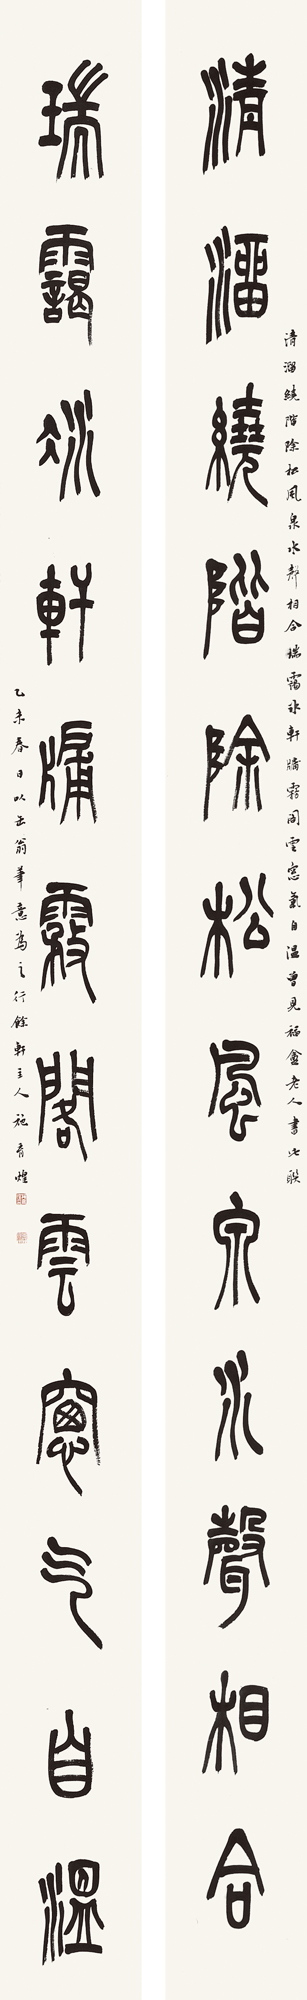 清溜繞階除松風泉水聲相合瑞靄冰軒牖霧閣雲窓氣自温曾見福盦老人書此聯
清溜繞階除松風泉水聲相合
瑞靄冰軒牖霚閣雲窻气自溫
乙未春日以缶翁筆意為之行餘軒主人施育煌